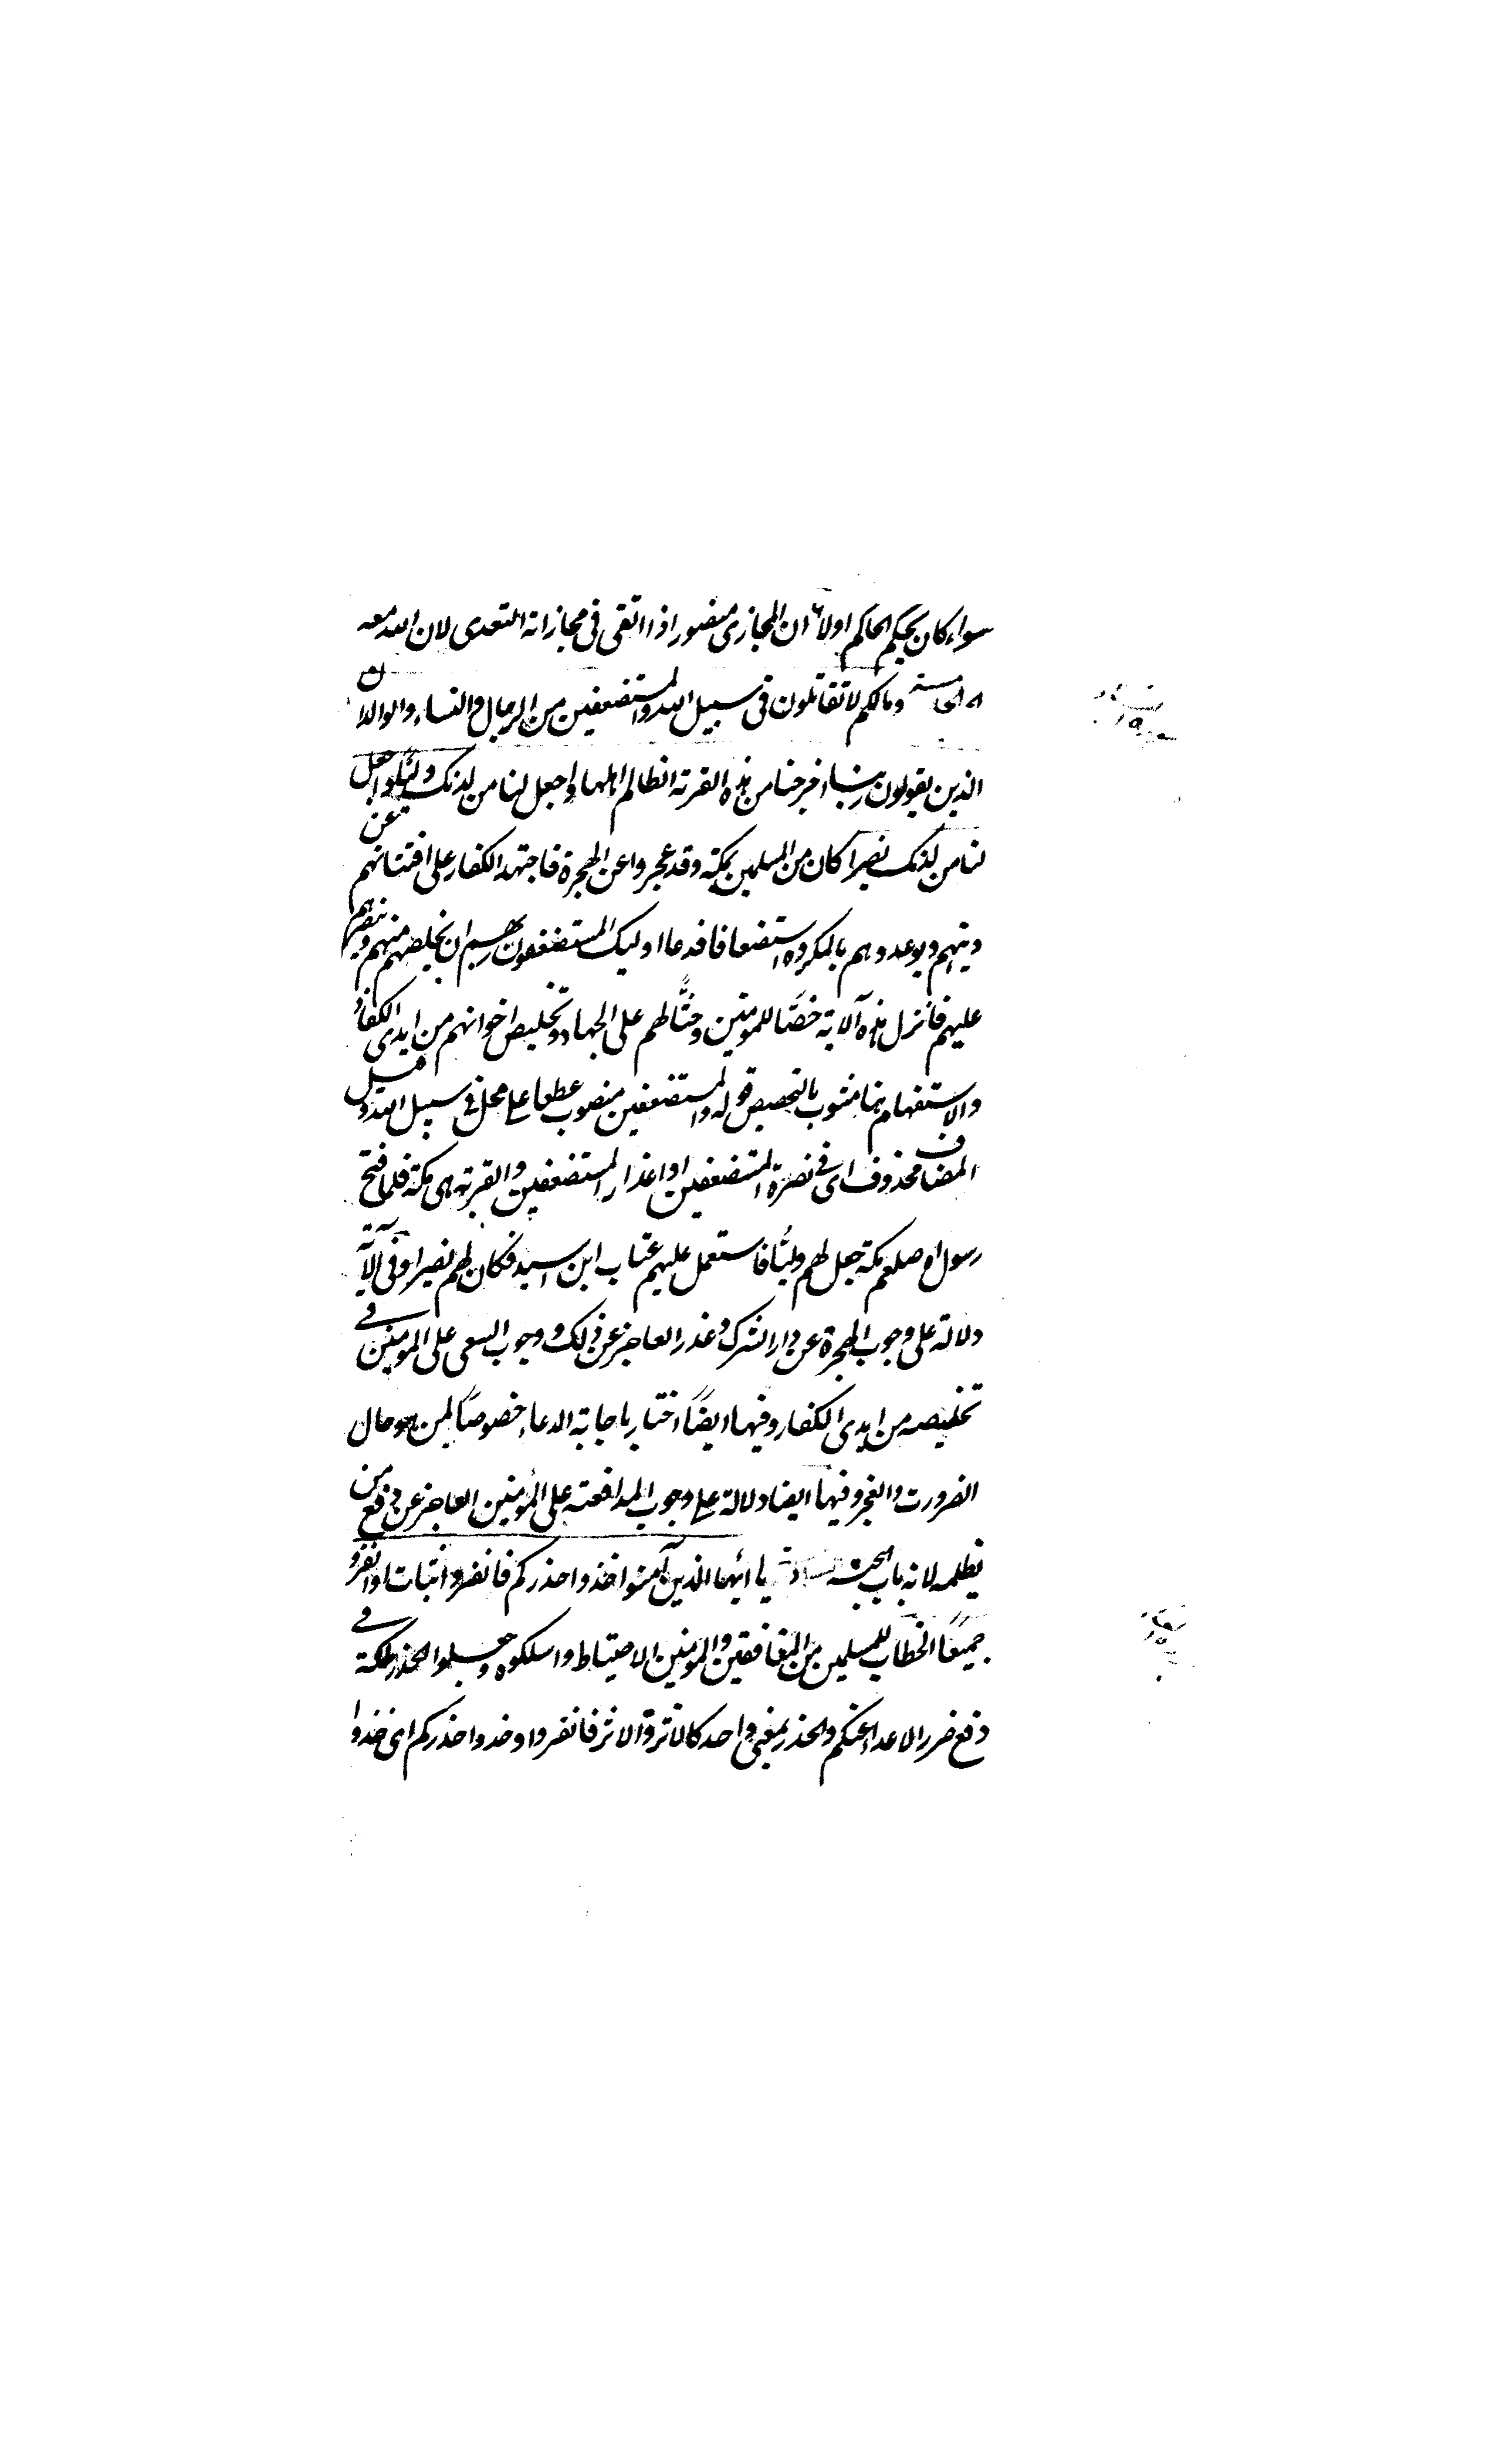 سواء كان بحكم الحاكم اولا ان المجازى منصور اذا اتقى فى مجازاته التعدى لان الله معه
وما لكم لا تقاتلون فى سبيل الله والمستضعفين من الرجال والنساء والولدان
الذين يقولون ربنا اخرجنا من هذه القرية الظالم اهلها واجعل لنا من لدنك وليًّا واجعل
لنا من لدنك نصيرا كان من المسلمين بمكة وقد عجزوا عن الهجرة فاجتهد الكفار على افتتانهم عن
دينهم ويوعدوهم بالمكروه استضعافا فدعا اوليك المستضعفون ربهم ان يخلصهم منهم وينصرهم
عليهم فانزل هذه الآية حضًّا للمومنين وحثًّا لهم على الجهاد وتخليص اخوانهم من ايدى الكفار
والاستفهام هنا مشوب بالتحضيض قوله والمستضعفين منصوب عطفا على محل فى سبيل الله وقيل
المضاف محذوف اى فى نصرة المستضعفين او اعذار المستضعفين والقرية هى مكة فلما فتح
رسول الله صلعم مكة جعل لهم وليًّا فاستعمل عليهم عتاب ابن اسيد فكان لهم نصيرا وفى الآية
دلالة على وجوب الهجرة عن دار الشرك وعذر العاجز عن ذلك ووجوب السعى على المومنين فى
تخليصه من ايدى الكفار وفيها ايضًا اخبار باجابة الدعاء خصوصًا لمن هو حال
الضرورت والعجز وفيها ايضا دلالة على وجوب المدافعة على المؤمنين العاجز عن دفع من
يظلمه لانه باب الحسبة يا ايها الذين آمنوا خذوا حذركم فانفروا ثبات او انفروا
جميعًا الخطاب للمسلمين من المنافقين والمومنين الاحتياط واسلكوه وجعلوا الحذر ملكة فى
دفع ضرر الاعداء عنكم والحذر بمعنى واحد كالاثر والاثر فانفروا وخذوا حذركم اى خذوا